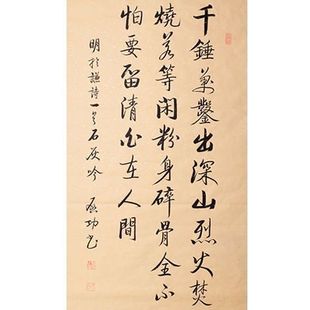 千錘萬鑿出深山烈火焚
燒若等閑粉身碎骨全不
怕要留清白在人間
明於謙詩一首石灰吟 啟功書